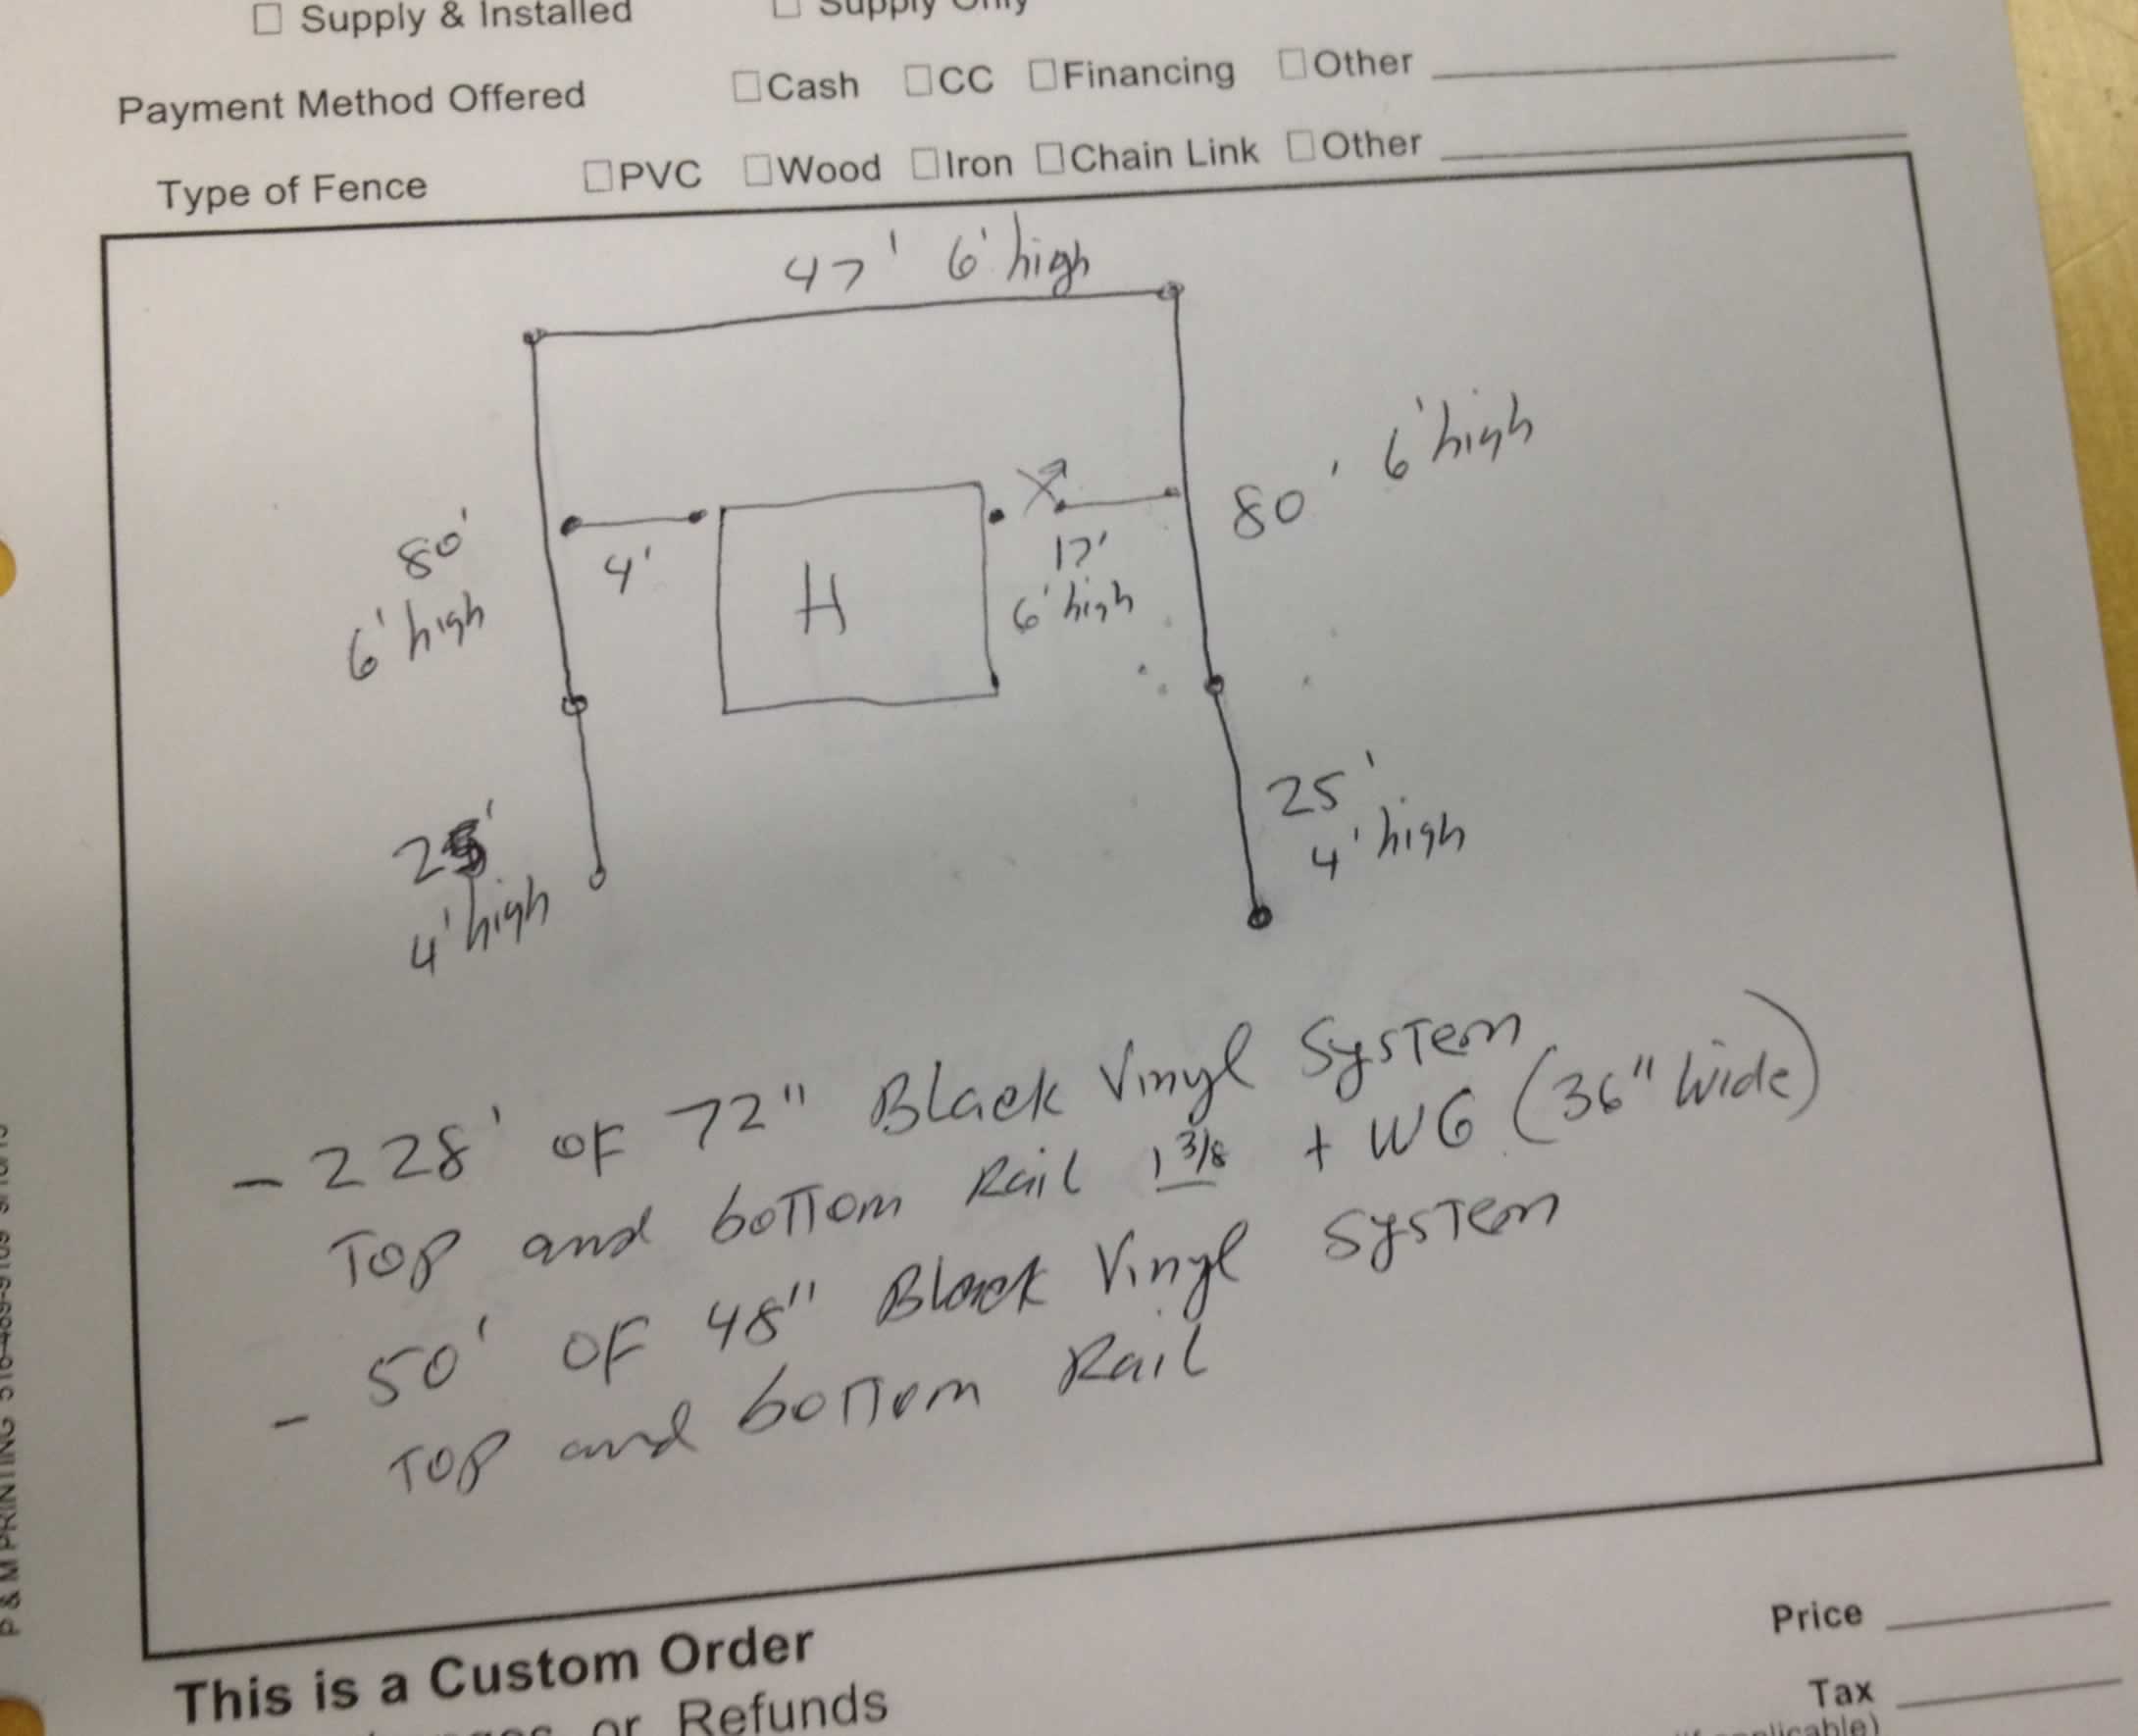 ☐ Supply & Installed ☐ Supply Only
Payment Method Offered ☐Cash ☐CC ☐Financing ☐Other
Type of Fence ☐PVC ☐Wood ☐Iron ☐Chain Link ☐Other
47' 6' high
80' 6' high
80'
6' high
4'
H
17'
6' high
25'
4' high
25'
4' high
- 228' OF 72" Black Vinyl System
Top and bottom Rail 1 3/8 + WG (36" Wide)
- 50' OF 48" Black Vinyl System
Top and bottom Rail
P & M PRINTING
Price
This is a Custom Order
Tax
or Refunds